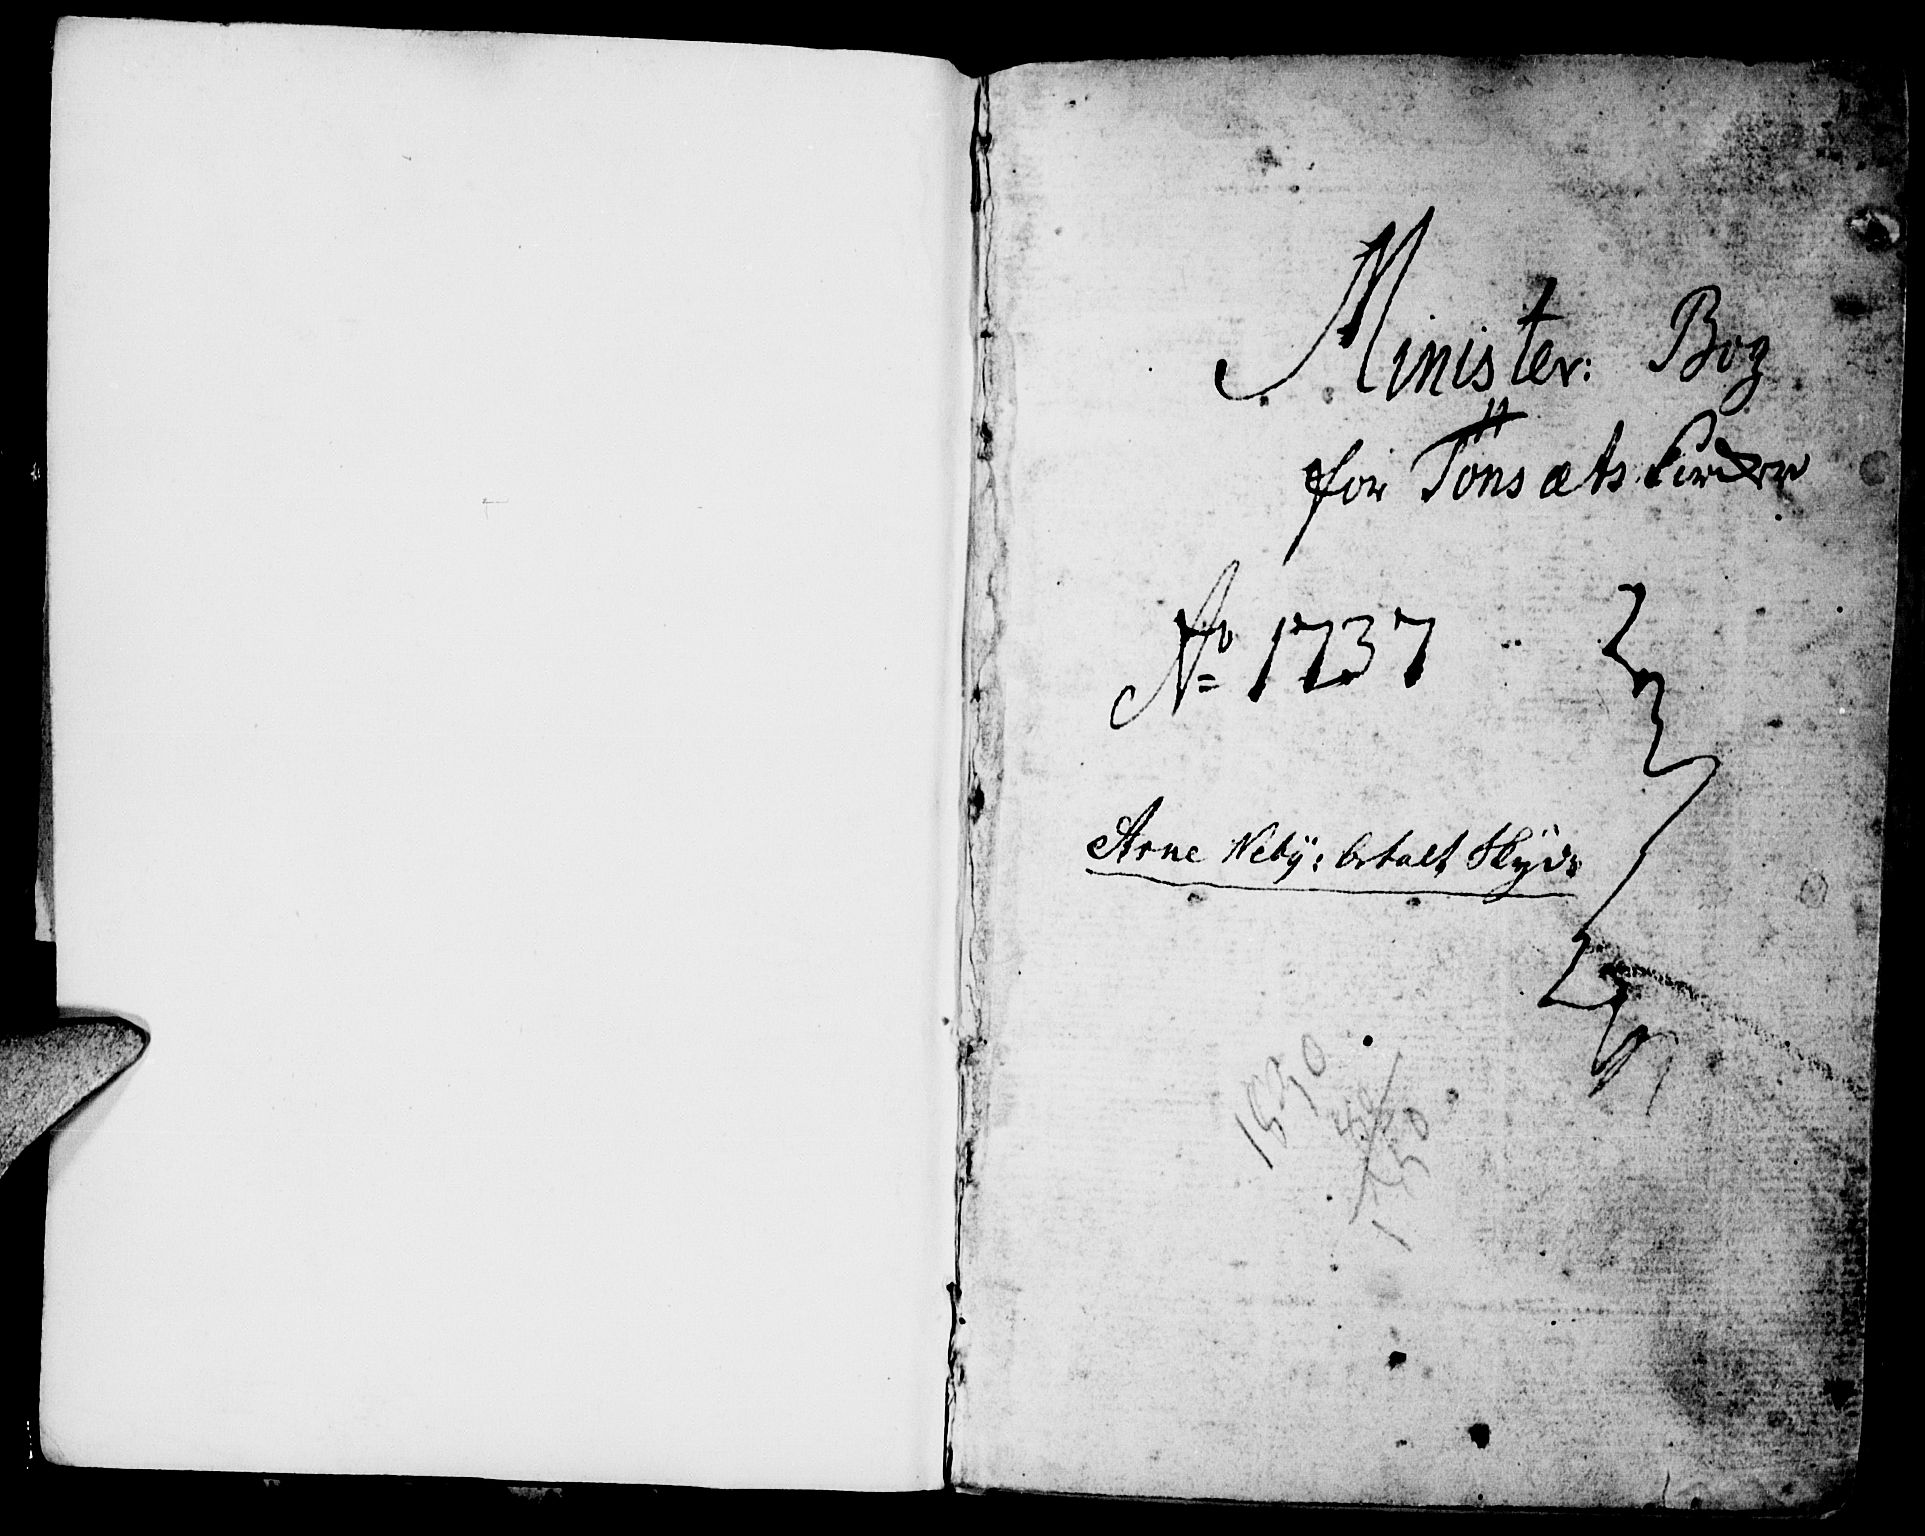 Minister: Bog
for Tönsæts Kircker
No 1737
Arne Nebÿ: betalt Skyds
1530